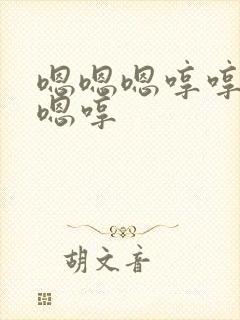 嗯嗯嗯哼哼
嗯哼
胡文音